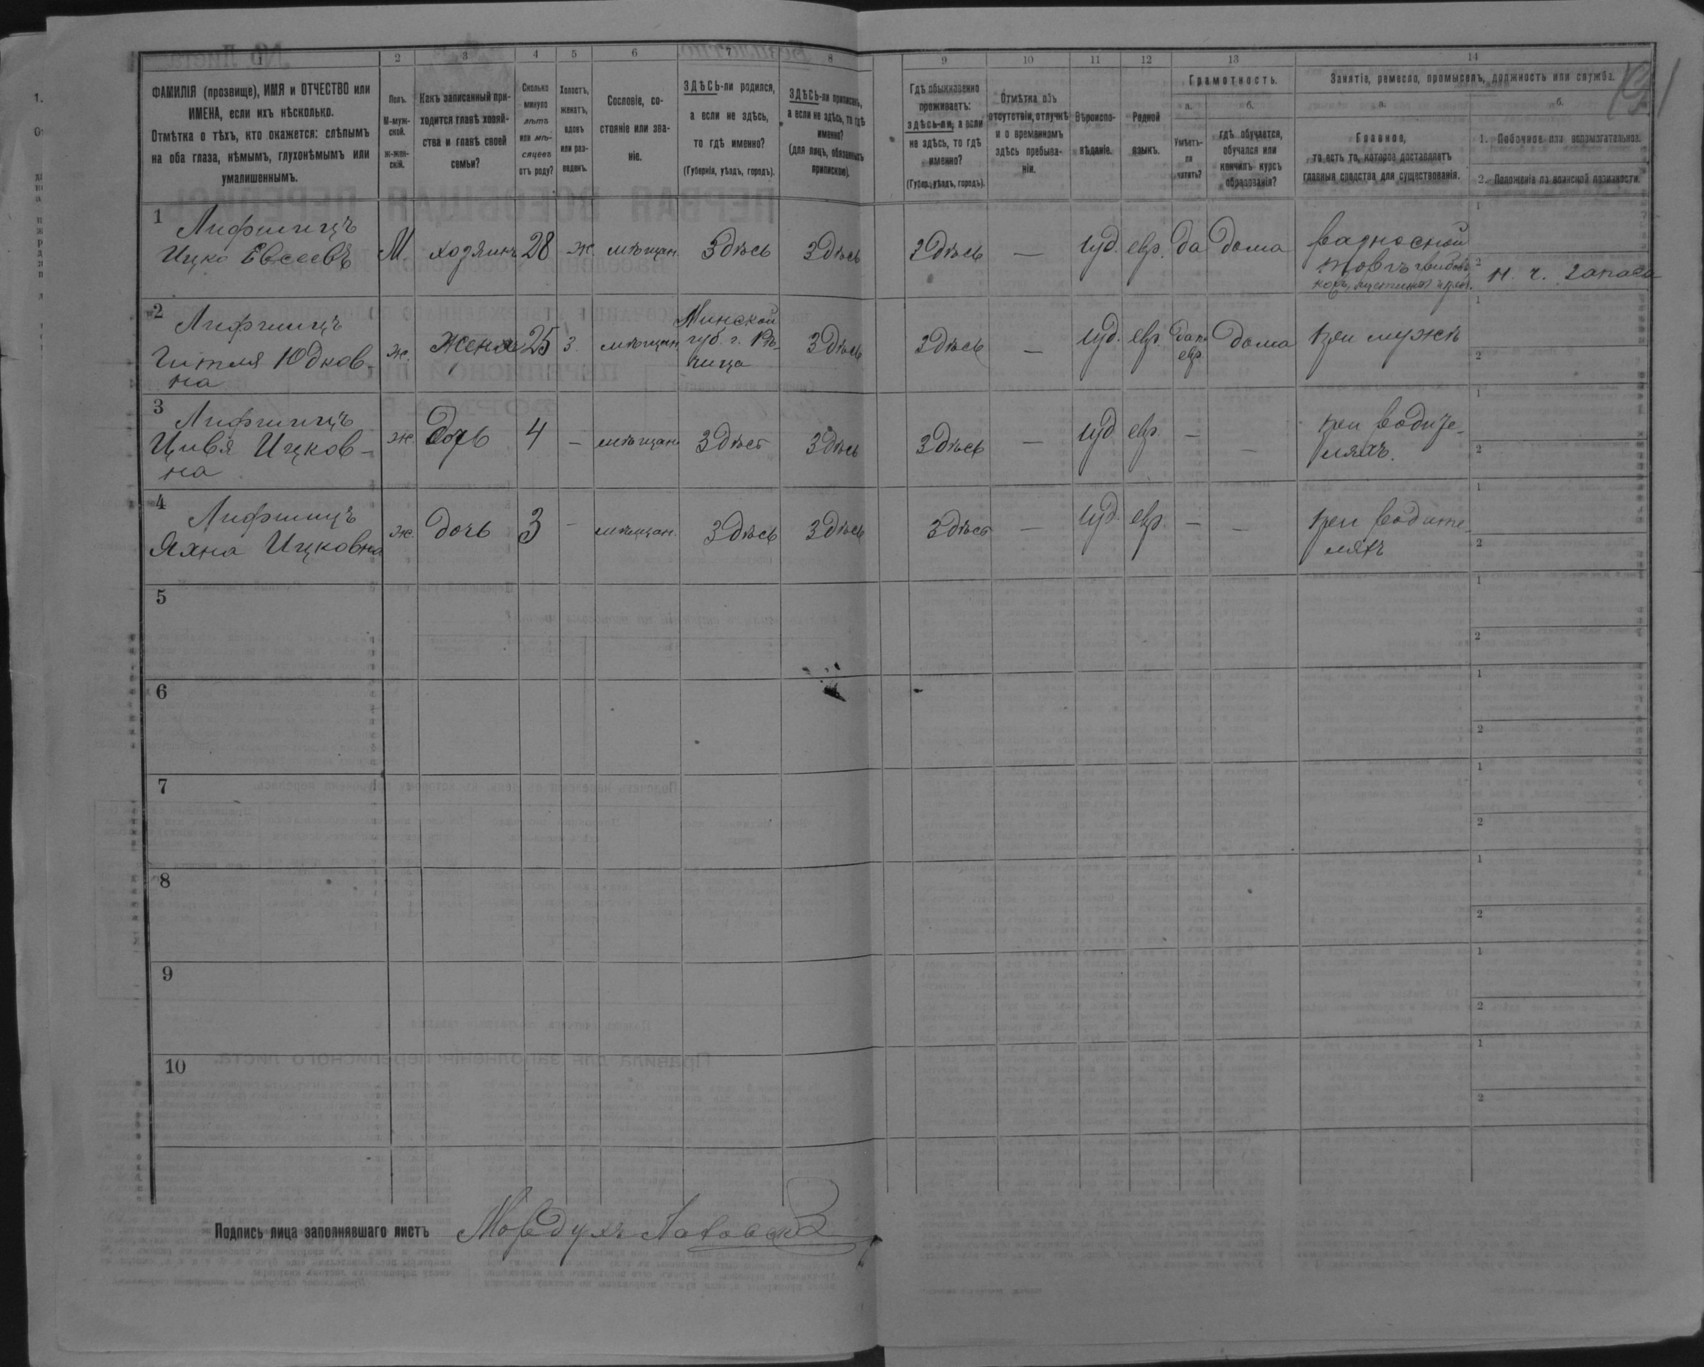 1 2 3 4 5 6 7 8 9 10 11 12 13 14
ФАМИЛІЯ (прозвище), ИМЯ и ОТЧЕСТВО или
ИМЕНА, если ихъ нѣсколько.
Отмѣтка о тѣхъ, кто окажется: слѣпымъ
на оба глаза, нѣмымъ, глухонѣмымъ или
умалишеннымъ.
Полъ.
М-муж-
ской.
Ж-жен-
скій.
Какъ записанный при-
ходится главѣ хозяй-
ства и главѣ своей
семьи?
Сколько
минуло
лѣтъ
или мѣ-
сяцевъ
отъ роду?
Холостъ,
женатъ,
вдовъ
или раз-
веденъ.
Сословіе, со-
стояніе или зва-
ніе.
ЗДѢСЬ-ли родился,
а если не здѣсь,
то гдѣ именно?
(Губернія, уѣздъ, городъ).
ЗДѢСЬ-ли приписанъ,
а если не здѣсь, то гдѣ
именно?
(для лицъ, обязанныхъ
припискою).
Гдѣ обыкновенно
проживаетъ:
здѣсь-ли, а если
не здѣсь, то гдѣ
именно?
(Губерн., уѣздъ, городъ).
Отмѣтка объ
отсутствіи, отлучкѣ
и о временномъ
здѣсь пребыва-
ніи.
Вѣроиспо-
вѣданіе.
Родной
языкъ.
Грамотность.
а.
Умѣетъ-
ли
читать?
б.
гдѣ обучается,
обучался или
кончилъ курсъ
образованія?
Занятіе, ремесло, промыселъ, должность или служба.
а.
Главное,
то есть то, которое доставляетъ
главныя средства для существованія.
б.
1. Побочное или вспомогательное.
2. Положеніе по воинской повинности.
1 Лифшицъ
Ицко Евсеевъ М. хозяинъ 28 ж. мѣщан. Здѣсь Здѣсь Здѣсь — Iуд. евр. да дома
разносной
2 н. ч. запаса
2 Лифшицъ
Гитля Юдков-
на ж. жена 25 з. мѣщан. Минской
губ. г. Рѣ-
чица Здѣсь Здѣсь — Iуд. евр. да п.
евр. дома при мужѣ
3 Лифшицъ
Цивя Ицков-
на ж. дочь 4 — мѣщан. Здѣсь Здѣсь Здѣсь — Iуд. евр. — — при родите-
ляхъ.
4 Лифшицъ
Яхна Ицковна ж. дочь 3 — мѣщан. Здѣсь Здѣсь Здѣсь — Iуд. евр. — — при родите-
ляхъ
5
6
7
8
9
10
Подпись лица заполнявшаго листъ Мордухъ